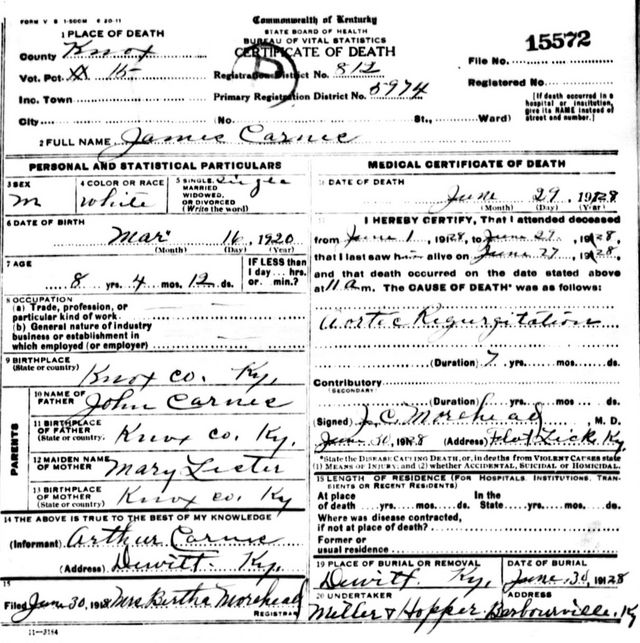 FORM V S 1-50OM 6 20-11
Commonwealth of Kentucky
STATE BOARD OF HEALTH
BUREAU OF VITAL STATISTICS
CERTIFICATE OF DEATH
1 PLACE OF DEATH
County Knox
Vot. Pct XX 15
Inc. Town
City (No. St., Ward)
Registration District No. 812
Primary Registration District No. 5974
File No. 15572
Registered No.
[If death occurred in a
hospital or institution,
give its NAME instead of
street and number.]
2 FULL NAME James Carnes
PERSONAL AND STATISTICAL PARTICULARS
3 SEX
M
4 COLOR OR RACE
White
5 SINGLE
MARRIED
WIDOWED,
OR DIVORCED
(Write the word)
Single
6 DATE OF BIRTH
Mar 16, 1920
(Month) (Day) (Year)
7 AGE
8 yrs. 4 mos. 12 ds.
IF LESS than
1 day... hrs.
or min.?
8 OCCUPATION
(a) Trade, profession, or
particular kind of work
(b) General nature of industry
business or establishment in
which employed (or employer)
9 BIRTHPLACE
(State or country)
Knox co. Ky.
PARENTS
10 NAME OF
FATHER John Carnes
11 BIRTHPLACE
OF FATHER
(State or country) Knox co. Ky.
12 MAIDEN NAME
OF MOTHER Mary Lester
13 BIRTHPLACE
OF MOTHER
(State or country) Knox co. Ky
14 THE ABOVE IS TRUE TO THE BEST OF MY KNOWLEDGE
(Informant) Arthur Carnes
(Address) Dewitt Ky.
15
Filed June 30, 1928 Mrs Bertha Morehead
REGISTRAR
11-3184
MEDICAL CERTIFICATE OF DEATH
DATE OF DEATH
June 29, 1928
(Month) (Day) (Year)
I HEREBY CERTIFY, That I attended deceased
from June 1, 1928, to June 27, 1928,
that I last saw him alive on June 27, 1928,
and that death occurred on the date stated above
at 11 a m. The CAUSE OF DEATH* was as follows:
Aortic Regurgitation
(Duration) 7 yrs. mos. ds.
Contributory
(SECONDARY)
(Duration) yrs. mos. ds.
(Signed) J. C. Morehead, M. D.
June 30, 1928 (Address) Flat Lick Ky.
*State the DISEASE CAUSING DEATH, or, in deaths from VIOLENT CAUSES state
(1) MEANS OF INJURY, and (2) whether ACCIDENTAL, SUICIDAL or HOMICIDAL.
18 LENGTH OF RESIDENCE (FOR HOSPITALS, INSTITUTIONS, TRAN-
SIENTS OR RECENT RESIDENTS)
At place In the
of death yrs. mos. ds. State yrs. mos. ds.
Where was disease contracted,
if not at place of death?
Former or
usual residence
19 PLACE OF BURIAL OR REMOVAL
Dewitt Ky.
DATE OF BURIAL
June 30, 1928
20 UNDERTAKER
Miller & Hopper
ADDRESS
Barbourville, Ky